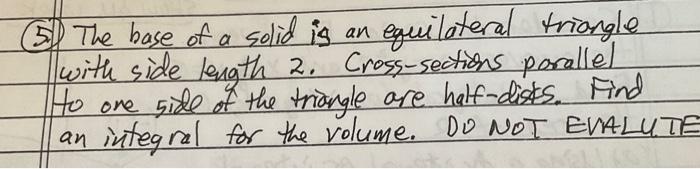 5) The base of a solid is an equilateral triangle
with side length 2. Cross-sections parallel
to one side of the triangle are half-disks. Find
an integral for the volume. DO NOT EVALUTE